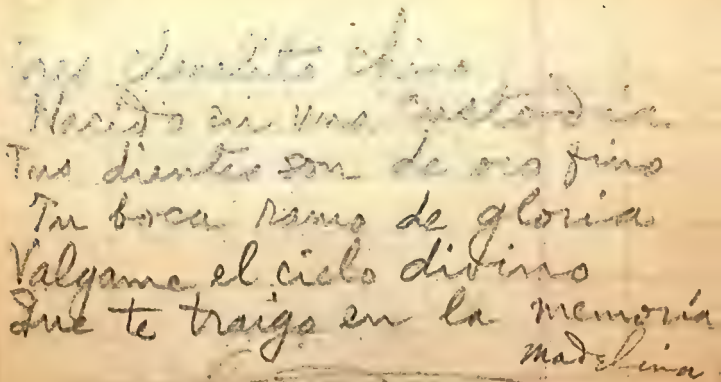 Nacido en una custodia
Tus dientes son de oro fino
Tu boca ramo de gloria
Valgame el cielo divino
Que te traigo en la memoria
Madelina